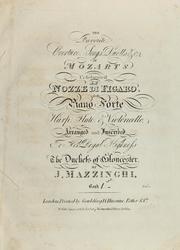 THE
Favorite
Overture, Songs, Duetts, &c.
in
MOZART'S
Celebrated
NOZZE DI FIGARO,
for the
Piano Forte
Harp, Flute & Violoncello,
Arranged and Inscribed
To Her Royal Highness
The Duchess of Gloucester,
by
J. MAZZINGHI,
Book 1
London, Printed by Goulding, D'Almaine, Potter & Co.